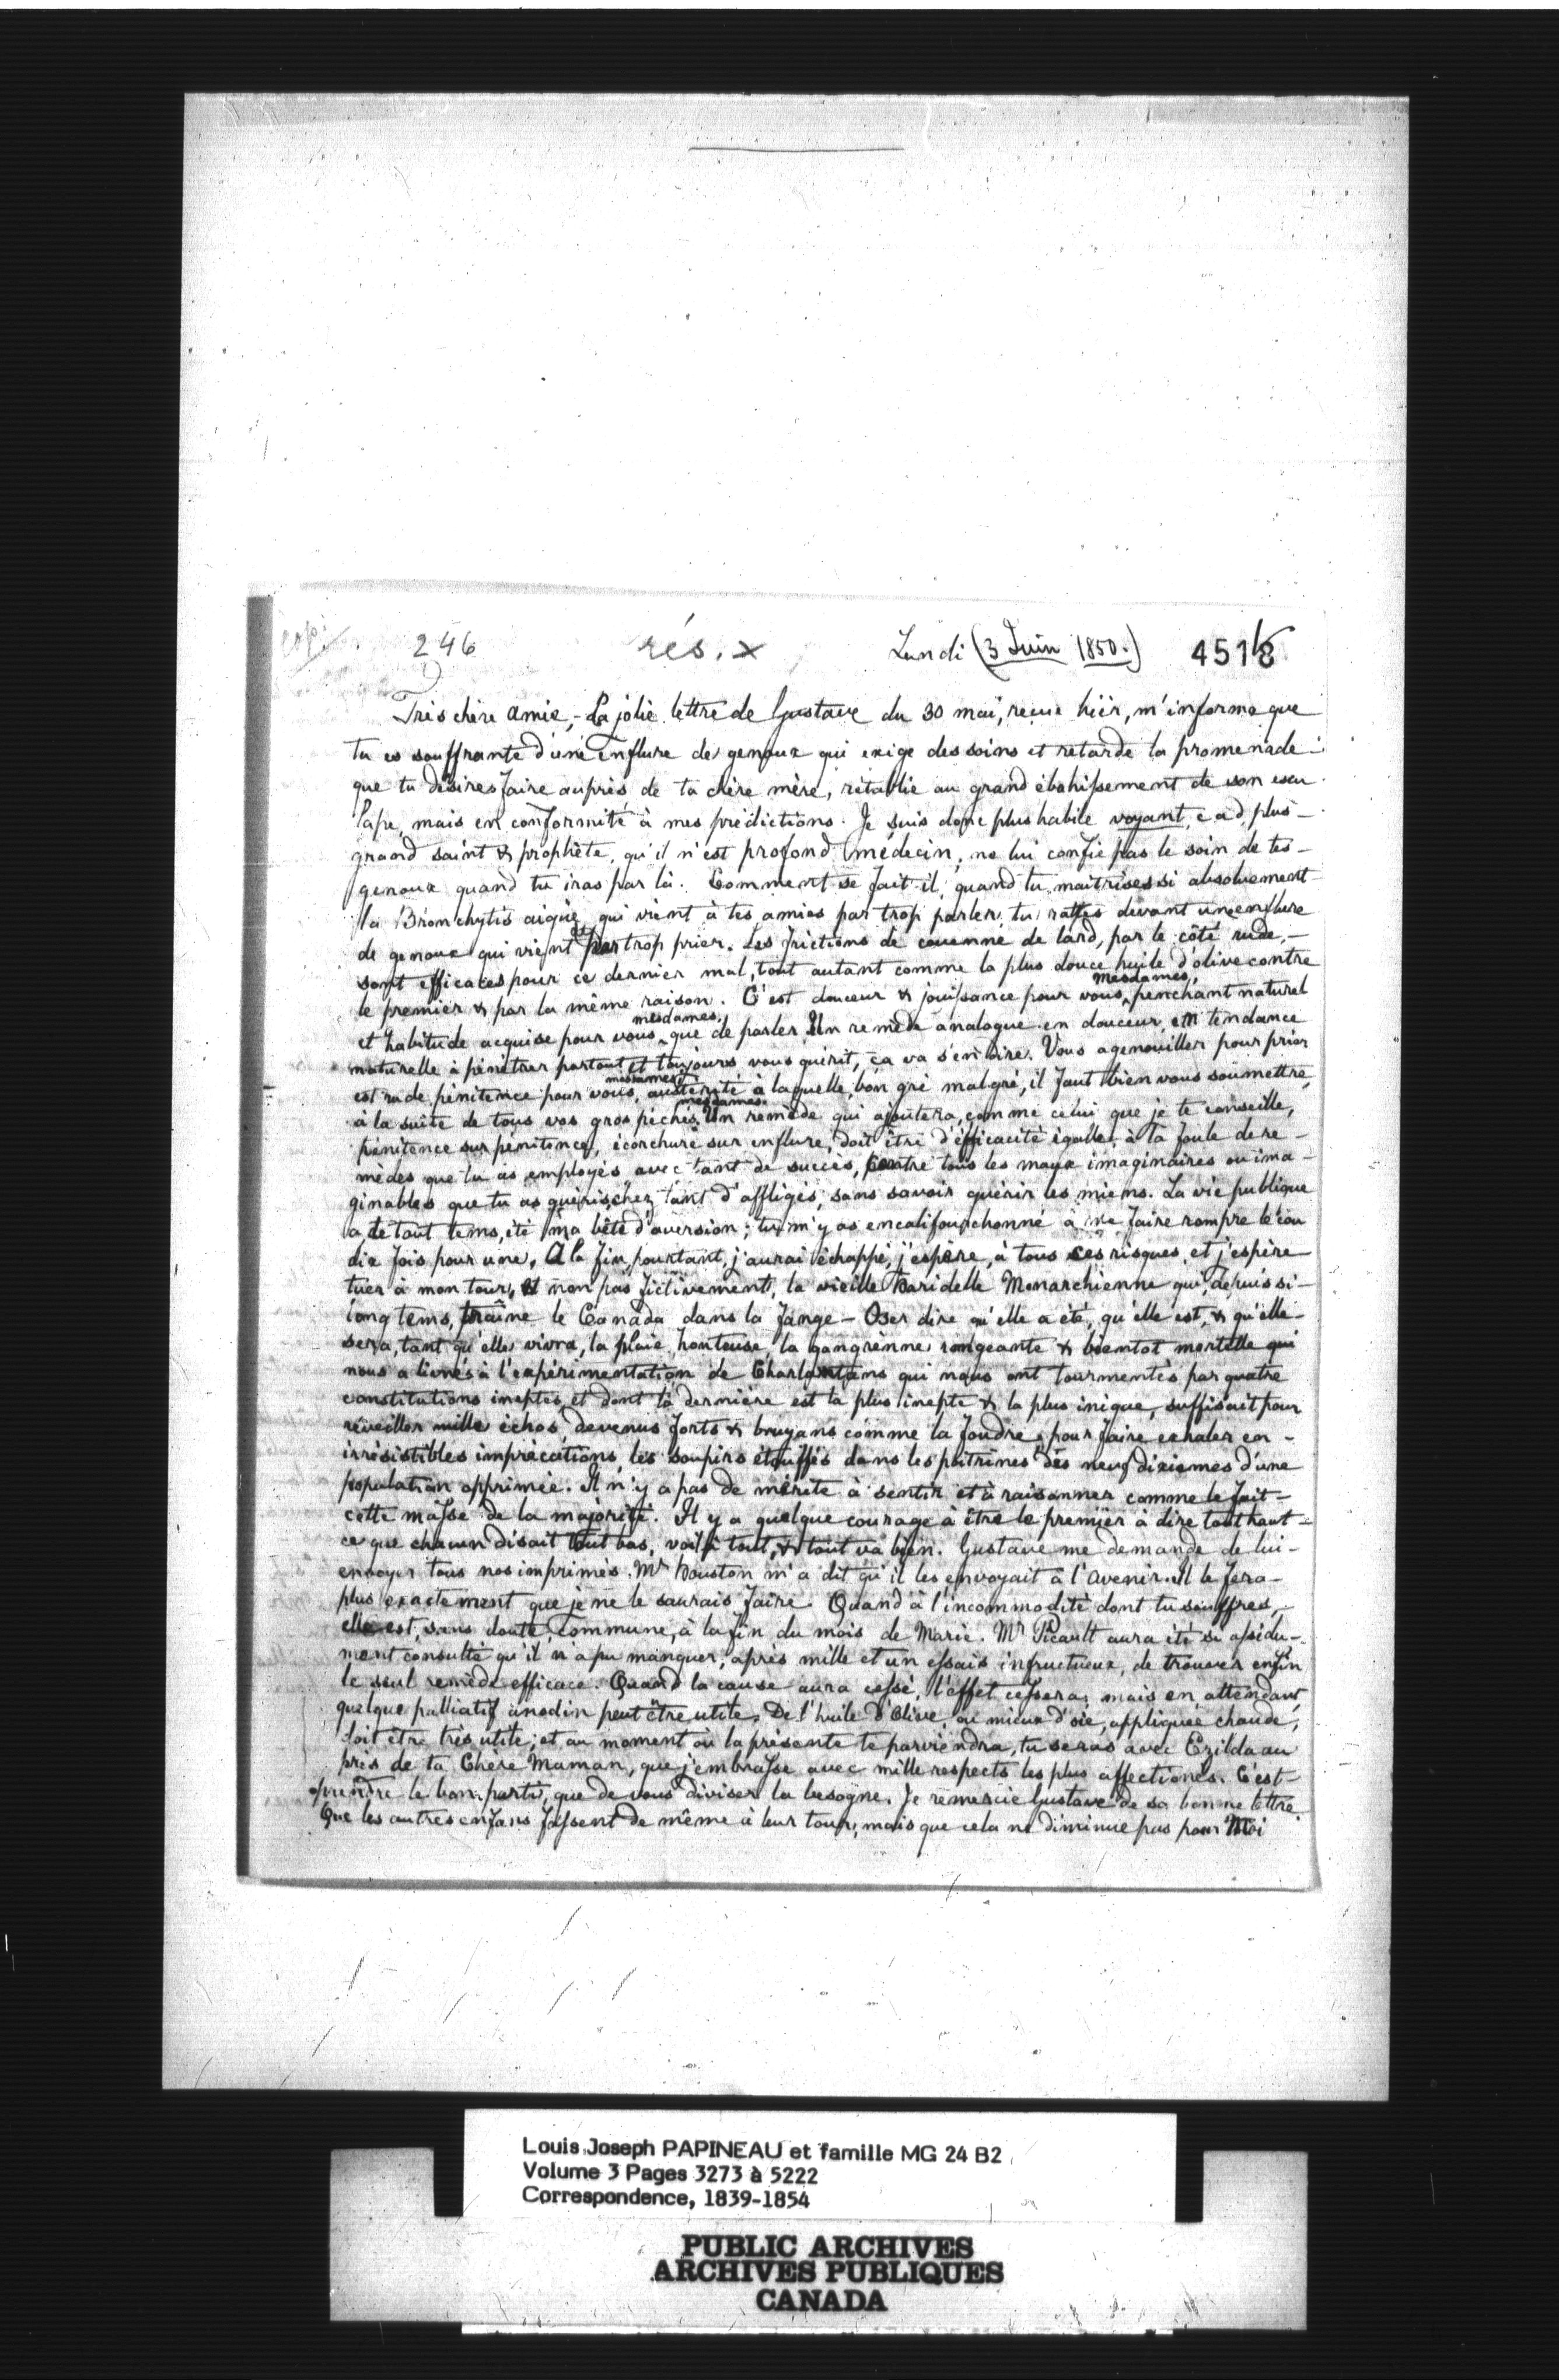 copi
246
rés. x
Lundi (3 Juin 1850.)
4518
Très chère Amie, - La jolie lettre de Gustave du 30 mai, reçue hier, m'informe que
tu es souffrante d'une enflure de genoux qui exige des soins et retarde la promenade
que tu désires faire auprès de ta chère mère, rétablie au grand ébahissement de son escu
lape, mais en conformité à mes prédictions. Je suis donc plus habile voyant, c a d, plus
grand saint & prophète, qu'il n'est profond médecin, ne lui confie pas le soin de tes
genoux quand tu iras par là. Comment se fait-il, quand tu maitrises si absolument
la Bronchytis aigüe qui vient à tes amies par trop parler, tu rattes devant une enflure
de genoux qui vient par trop prier. Les frictions de couenne de lard, par le côté rude,
sont efficaces pour ce dernier mal, tout autant comme la plus douce huile d'olive contre
le premier & par la même raison. C'est douceur & jouissance pour vous, mesdames, penchant naturel
et habitude acquise pour vous, mesdames, que de parler. Un remède analogue en douceur, en tendance
naturelle à pénétrer partout et toujours vous guérit, ça va s'en dire. Vous agenouiller pour prier
est rude pénitence pour vous, mesdames, austérité à laquelle, bon gré malgré, il faut bien vous soumettre,
à la suite de tous vos gros péchés, mesdames. Un remède qui ajoutera, comme celui que je te conseille,
pénitence sur pénitence, écorchure sur enflure, doit être d'efficacité égalle, à la foule de re-
mèdes que tu as employés avec tant de succès, contre tous les maux imaginaires ou ima-
ginables que tu as guéris, chez tant d'affligés, sans savoir guérir les miens. La vie publique
a, de tout tems, été ma bête d'aversion; tu m'y as encalifourchonné à me faire rompre le cou
dix fois pour une. A la fin, pourtant, j'aurai échappé, j'espère, à tous ces risques, et j'espère
tuer à mon tour, et non pas fictivement, la vieille haridelle Monarchienne qui, depuis si
long tems, traîne le Canada dans la fange - Oser dire qu'elle a été, qu'elle est, & qu'elle
sera, tant qu'elle vivra, la plaie honteuse, la gangrènne rongeante & bientot mortelle qui
nous a livrés à l'expérimentation de Charlatans qui nous ont tourmentés par quatre
constitutions ineptes, et dont la dernière est la plus inepte & la plus inique, suffisait pour
réveiller mille échos, devenus forts & bruyans comme la foudre, pour faire exhaler en
irrésistibles imprécations, les soupirs étouffés dans les poitrines des neuf dixiemes d'une
population opprimée. Il n'y a pas de mérite à sentir et à raisonner comme le fait
cette masse de la majorité. Il y a quelque courage à être le premier à dire tout haut
ce que chacun disait tout bas, voilà tout, & tout va bien. Gustave me demande de lui
envoyer tous nos imprimés. Mr Houston m'a dit qu'il les envoyait à l'avenir. Il le fera
plus exactement que je ne le saurais faire. Quand à l'incommodité dont tu souffres,
elle est, sans doute, commune, à la fin du mois de Marie. Mr Picault aura été si assidu-
ment consulté qu'il n'a pu manquer, après mille et un essais infructueux, de trouver enfin
le seul remède efficace. Quand la cause aura cessé, l'effet cessera, mais en attendant
quelque palliatif anodin peut être utile. De l'huile d'Olive, ou mieux d'oie, appliquée chaude,
doit être très utile; et au moment où la présente te parviendra, tu seras avec Ezilda au
près de ta Chère Maman, que j'embrasse avec mille respects les plus affectionés. C'est
prendre le bon parti, que de vous diviser la besogne. Je remercie Gustave de sa bonne lettre.
Que les autres enfans fassent de même à leur tour, mais que cela ne diminue pas pour Moi
Louis Joseph PAPINEAU et famille MG 24 B2
Volume 3 Pages 3273 à 5222
Correspondence, 1839-1854
PUBLIC ARCHIVES
ARCHIVES PUBLIQUES
CANADA